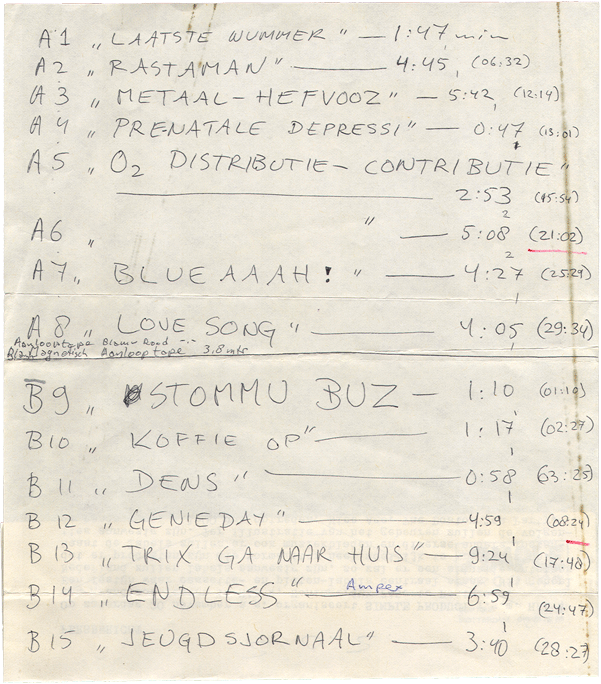 A1 „LAATSTE NUMMER" — 1:47 min
A2 „RASTAMAN" — 4:45 (06:32)
A3 „METAAL-HEFVOOZ" — 5:42 (12:14)
A4 „PRENATALE DEPRESSI" — 0:47 (13:01)
A5 „O2 DISTRIBUTIE-CONTRIBUTIE"
— 2:53 (15:54)
A6 „ " — 5:08 (21:02)
A7 „BLUEAAAH!" — 4:27 (25:29)
A8 „LOVE SONG" — 4:05 (29:34)
Aanlooptape
Aanlooptape 3,8 mtr
B9 „STOMMU BUZ — 1:10 (01:10)
B10 „KOFFIE OP" — 1:17 (02:27)
B11 „DENS" — 0:58 (03:25)
B12 „GENIEDAY" — 4:59 (08:24)
B13 „TRIX GA NAAR HUIS" — 9:24 (17:48)
B14 „ENDLESS" — Ampex 6:59 (24:47)
B15 „JEUGDSJORNAAL" — 3:40 (28:27)